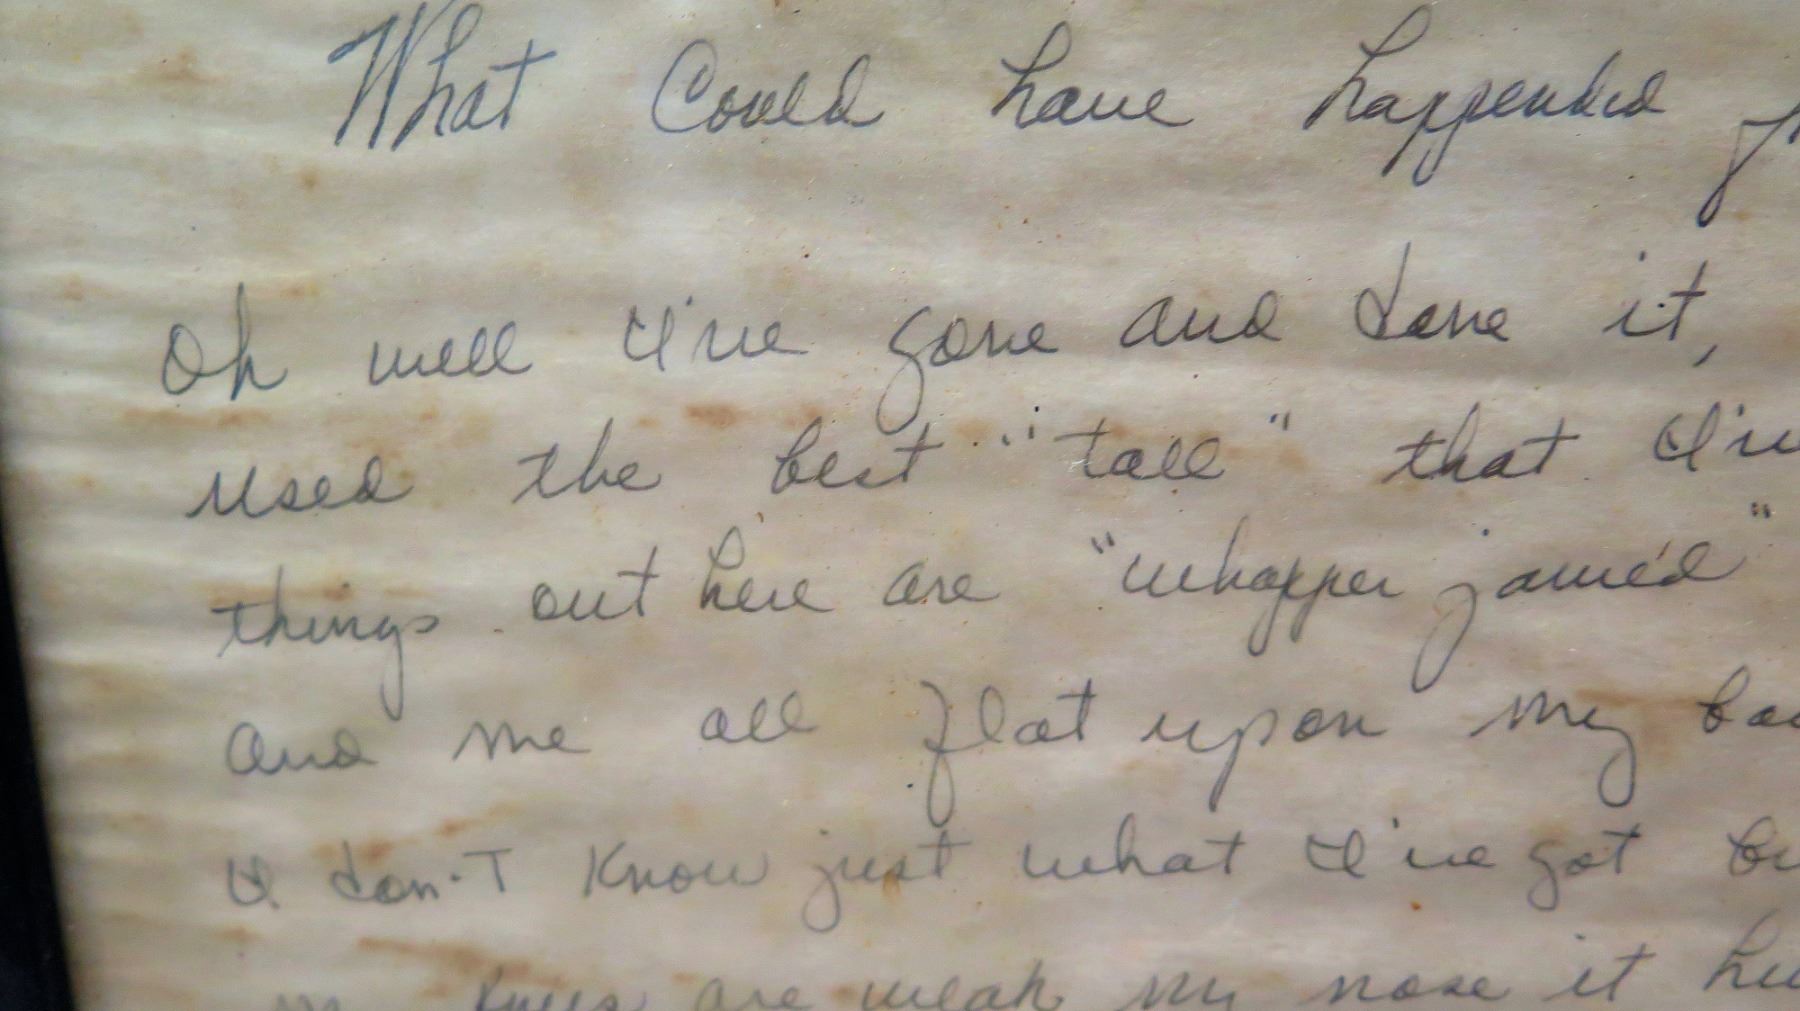 What Could have happended
Oh well I've gone and done it,
used the best "tall" that I've
things out here are "whapper jawed"
and me all flat upon my
I don't know just what I've got
knees are weak my nose it